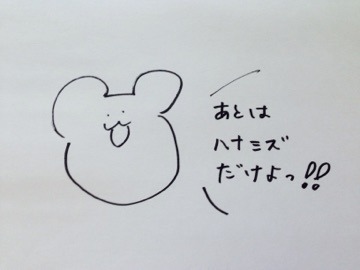 あとは
ハナミズ
だけよっ!!